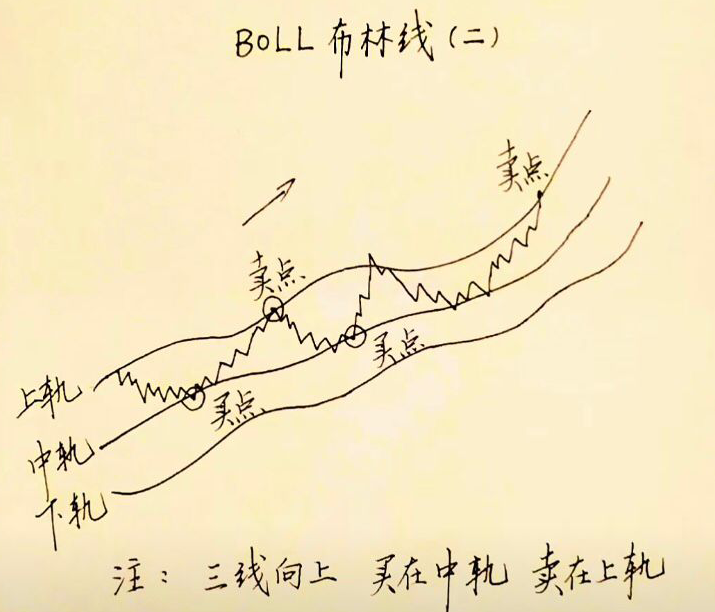 BOLL 布林线(二)
卖点
卖点
买点
买点
上轨
中轨
下轨
注: 三线向上 买在中轨 卖在上轨